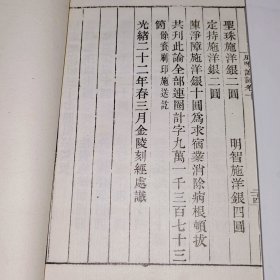 聖珠施洋銀一圓　明智施洋銀四圓
定持施洋銀一圓
陳淨障施洋銀十圓爲求宿業消除病根頓拔
共刋此論全部連圈計字九萬一千三百七十三
箇餘資刷印施送訖
光緒二十二年春三月金陵刻經處識